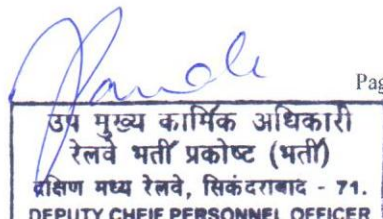 Pag
उप मुख्य कार्मिक अधिकारी
रेलवे भर्ती प्रकोष्ट (भर्ती)
दक्षिण मध्य रेलवे, सिकंदराबाद - 71.
DEPUTY CHEIF PERSONNEL OFFICER